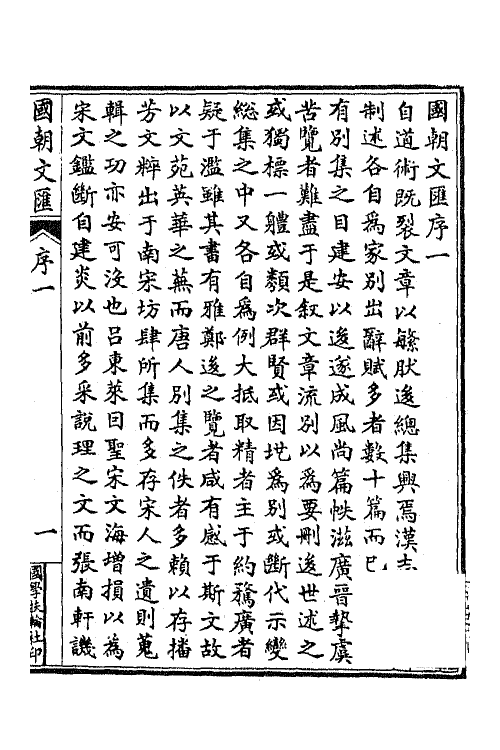 國朝文匯序一
自道術既裂文章以繇肰後總集興焉漢志
制述各自爲家別出辭賦多者數十篇而已
有別集之目建安以後遂成風尚篇帙滋廣晉摯虞
苦覽者難盡于是叙文章流別以爲要刪後世述之
或獨標一體或類次群賢或因地爲別或斷代示變
総集之中又各自爲例大抵取精者主于約騖廣者
疑于濫雖其書有雅鄭後之覽者咸有感于斯文故
以文苑英華之蕪而唐人別集之佚者多賴以存播
芳文粹出于南宋坊肆所集而多存宋人之遺則蒐
輯之功亦安可沒也呂東萊曰聖宋文海增損以爲
宋文鑑斷自建炎以前多采說理之文而張南軒譏
國朝文匯
序一
一
國學扶輪社印